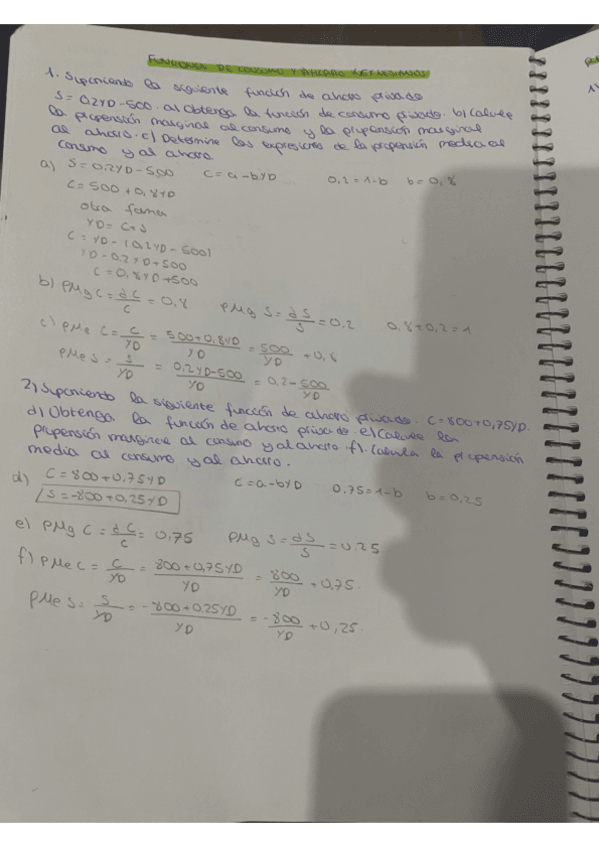 FUNCIONES DE CONSUMO Y AHORRO KEYNESIANOS
1. Suponiendo la siguiente función de ahorro privado
S = 0,2YD - 500. a) Obtenga la función de consumo privado. b) Calcule
la propensión marginal al consumo y la propensión marginal
al ahorro. c) Determine las expresiones de la propensión media al
consumo y al ahorro.
a) S = 0,2YD - 500 C = a - bYD 0,2 = 1-b b = 0,8
C = 500 + 0,8YD
otra forma
YD = C+S
C = YD - (0,2YD - 500)
YD - 0,2YD + 500
C = 0,8YD + 500
b) PMg C = dC/C = 0,8 PMg S = dS/S = 0,2 0,8 + 0,2 = 1
c) PMe C = C/YD = 500+0,8YD/YD = 500/YD + 0,8
PMe S = S/YD = 0,2YD-500/YD = 0,2 - 500/YD
2) Suponiendo la siguiente función de ahorro privado. C = 800 + 0,75YD.
d) Obtenga la función de ahorro privado. e) Calcule la
propensión marginal al consumo y al ahorro. f) Calcula la propensión
media al consumo y al ahorro.
d) C = 800 + 0,75YD C = a - bYD 0,75 = 1-b b = 0,25
S = -800 + 0,25YD
e) PMg C = dC/C = 0,75 PMg S = dS/S = 0,25
f) PMe C = C/YD = 800 + 0,75YD/YD = 800/YD + 0,75.
PMe S = S/YD = -800 + 0,25YD/YD = -800/YD + 0,25.